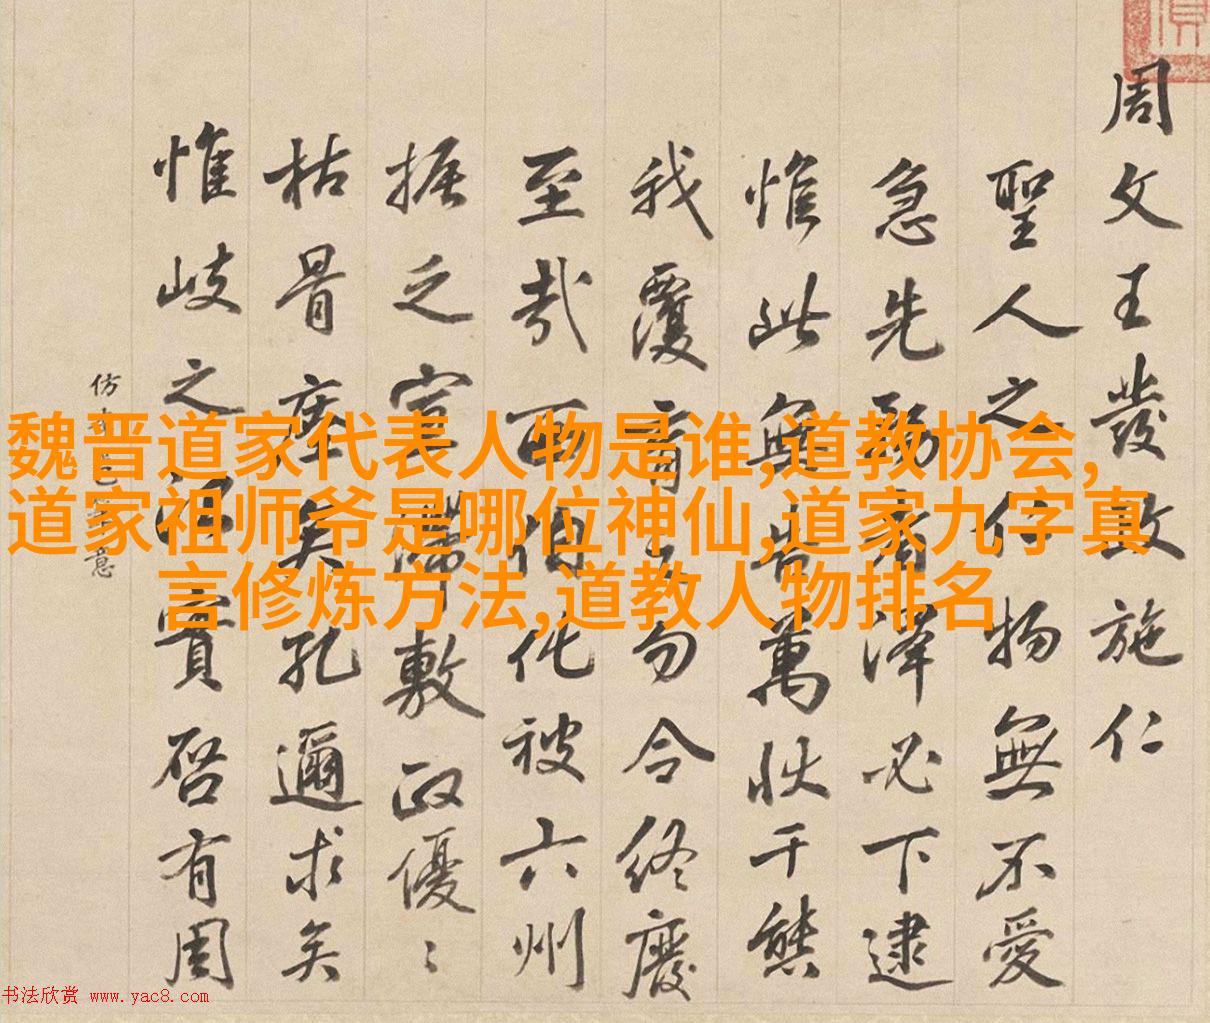 周文王發政施仁
聖人之仁物無不愛
急先務者澤必下逮
惟此無告萬狀千態
我覆育勿令終廢
至哉西伯化被六州
振之敷政優〻
枯骨瘞矣孔邇求矣
惟岐之實啓有周
仿意
魏晋道家代表人物是谁,道教协会,
道家祖师爷是哪位神仙,道家九字真
言修炼方法,道教人物排名
书法欣赏 www.yac8.com